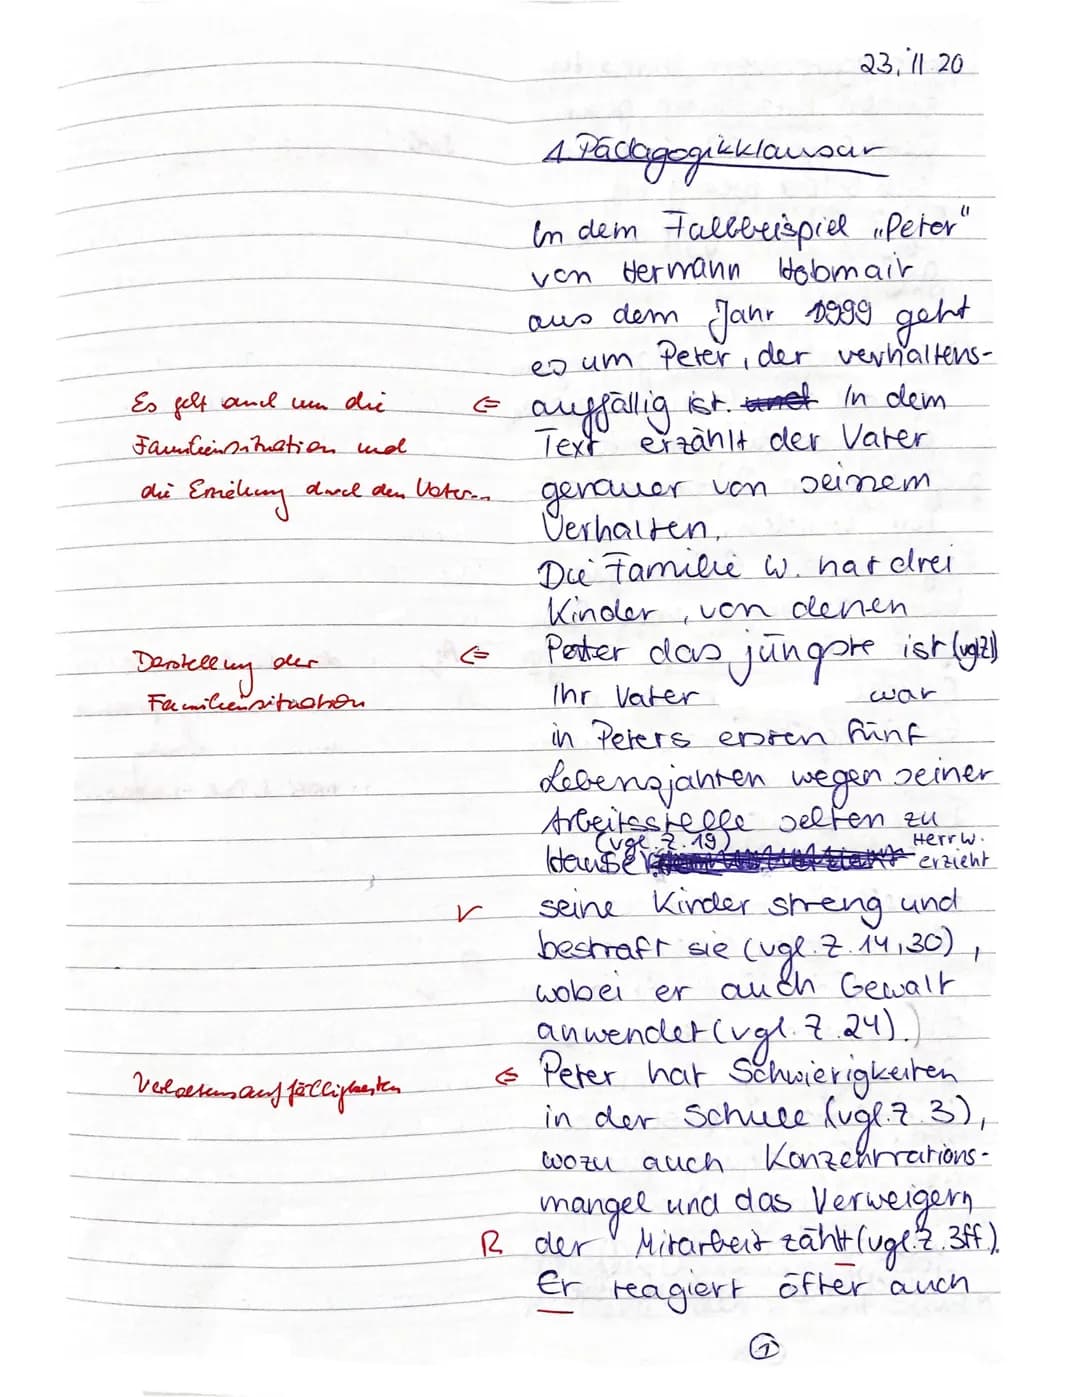 23.11.20
1. Pädagogikklausur
In dem Fallbeispiel „Peter"
von Hermann Hobmair
aus dem Jahr 1999 geht
es um Peter, der verhaltens-
Es geht auch um die
Familiensituation und
die Erziehung durch den Vater...
⇐ auffällig ist. und In dem
Text erzählt der Vater
genauer von seinem
Verhalten.
Die Familie W. hat drei
Kinder, von denen
Darstellung der
Familiensituation
⇐ Peter das jüngste ist (vgl Z1)
Ihr Vater war
in Peters ersten fünf
Lebensjahren wegen seiner
Arbeitsstelle selten zu
Hause (vgl. Z. 19) Herr W.
erzieht
√ seine Kinder streng und
bestraft sie (vgl. Z. 14,30),
wobei er auch Gewalt
anwendet (vgl. Z. 24).)
Verhaltensauffälligkeiten
⇐ Peter hat Schwierigkeiten
in der Schule (vgl. Z. 3),
wozu auch Konzentrations-
mangel und das Verweigern
R der Mitarbeit zählt (vgl. Z. 3ff.).
Er reagiert öfter auch
1